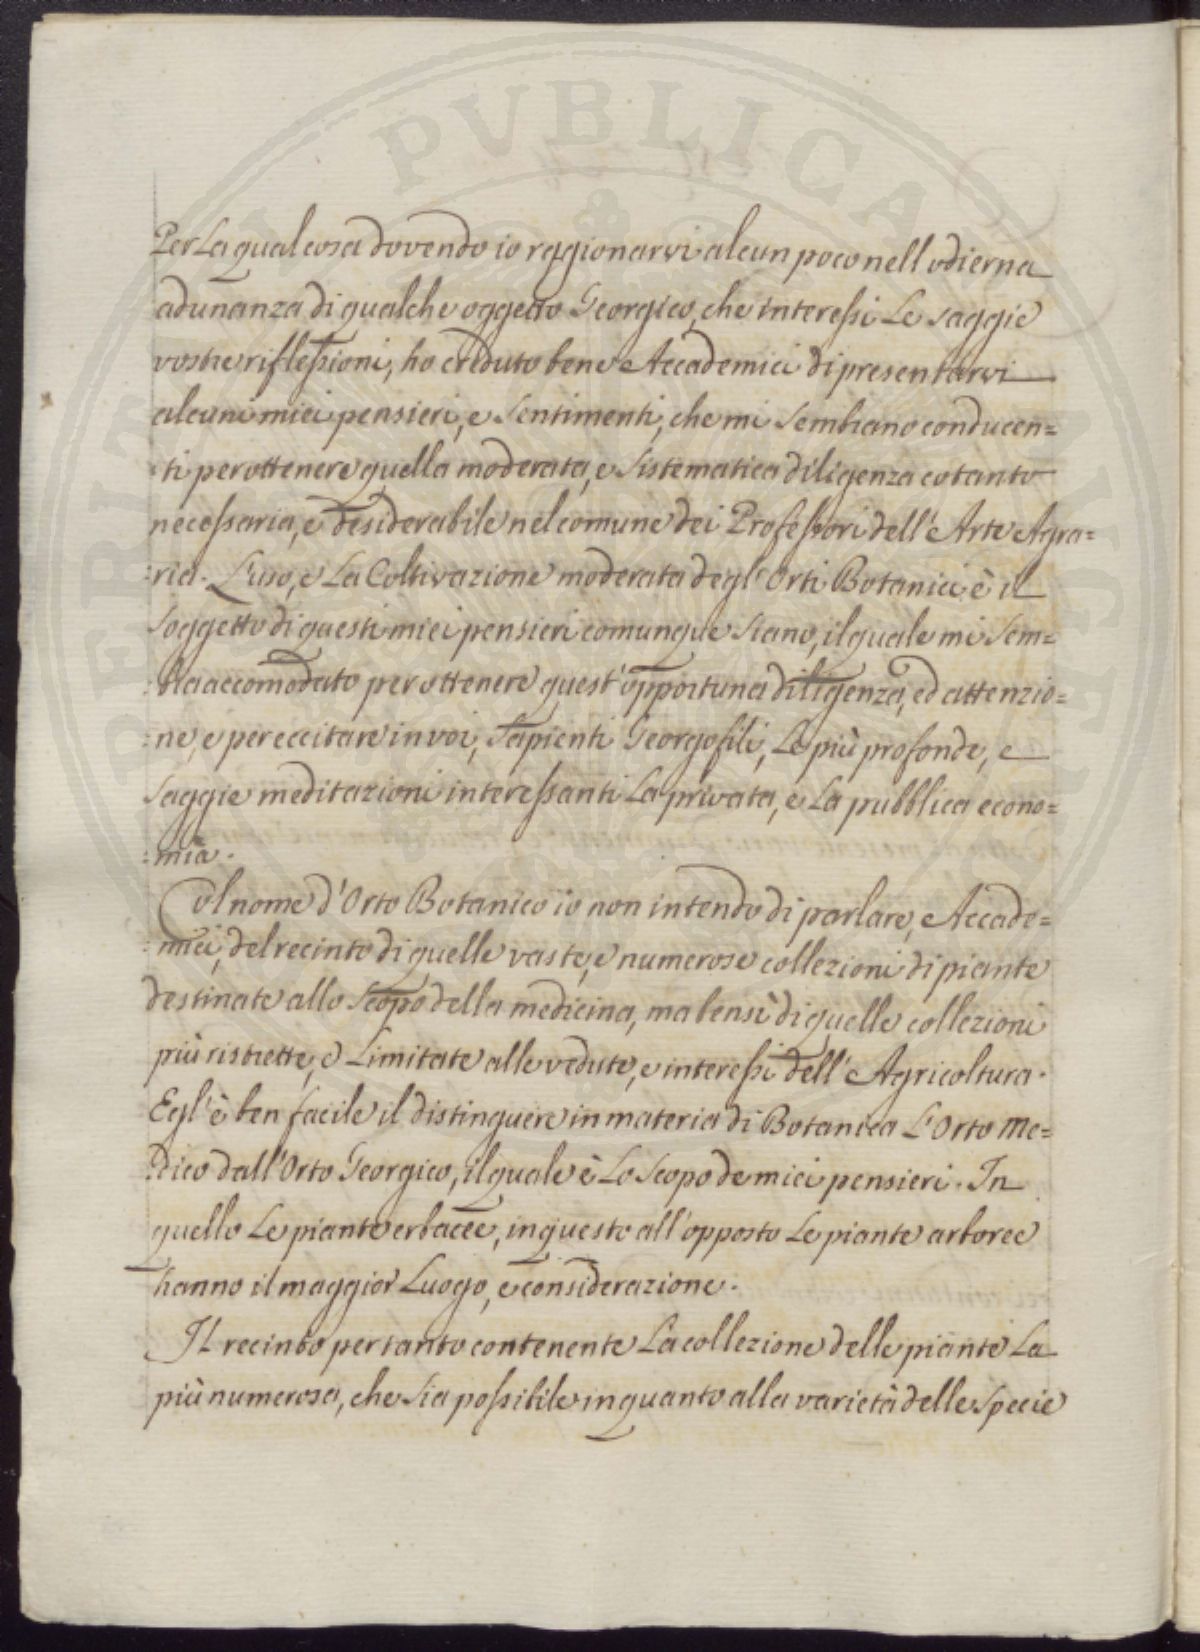 Per la qual cosa dovendo io ragionarvi alcun poco nell'odierna
adunanza di qualche oggetto Georgico, che interessi le saggie
vostre riflessioni, ho creduto bene Accademici di presentarvi
alcuni miei pensieri, e sentimenti, che mi sembrano conducen=
=ti per ottenere quella moderata, e sistematica diligenza cotanto
necessaria, e desiderabile nel comune dei Professori dell'Arte Agra=
=ria. L'uso, e la Coltivazione moderata degl'Orti Botanici è il
soggetto di questi miei pensieri comunque siano, il quale mi sem=
=bra accomodato per ottenere quest'opportuna diligenza, ed attenzio=
=ne, e per eccitare in voi, Sapienti Georgofili, le più profonde, e
saggie meditazioni interessanti la privata, e la pubblica econo=
=mia.
Col nome d'Orto Botanico io non intendo di parlare, Accade=
=mici, del recinto di quelle vaste, e numerose collezioni di piante
destinate allo scopo della medicina, ma bensì di quelle collezioni
più ristrette, e limitate alle vedute, e interessi dell'Agricoltura.
Egl'è ben facile il distinguere in materia di Botanica l'Orto Me=
=dico dall'Orto Georgico, il quale è lo scopo de miei pensieri. In
quello le piante erbacee, in questo all'opposto le piante arboree
hanno il maggior luogo, e considerazione.
Il recinto pertanto contenente la collezione delle piante la
più numerosa, che sia possibile in quanto alla varietà delle specie